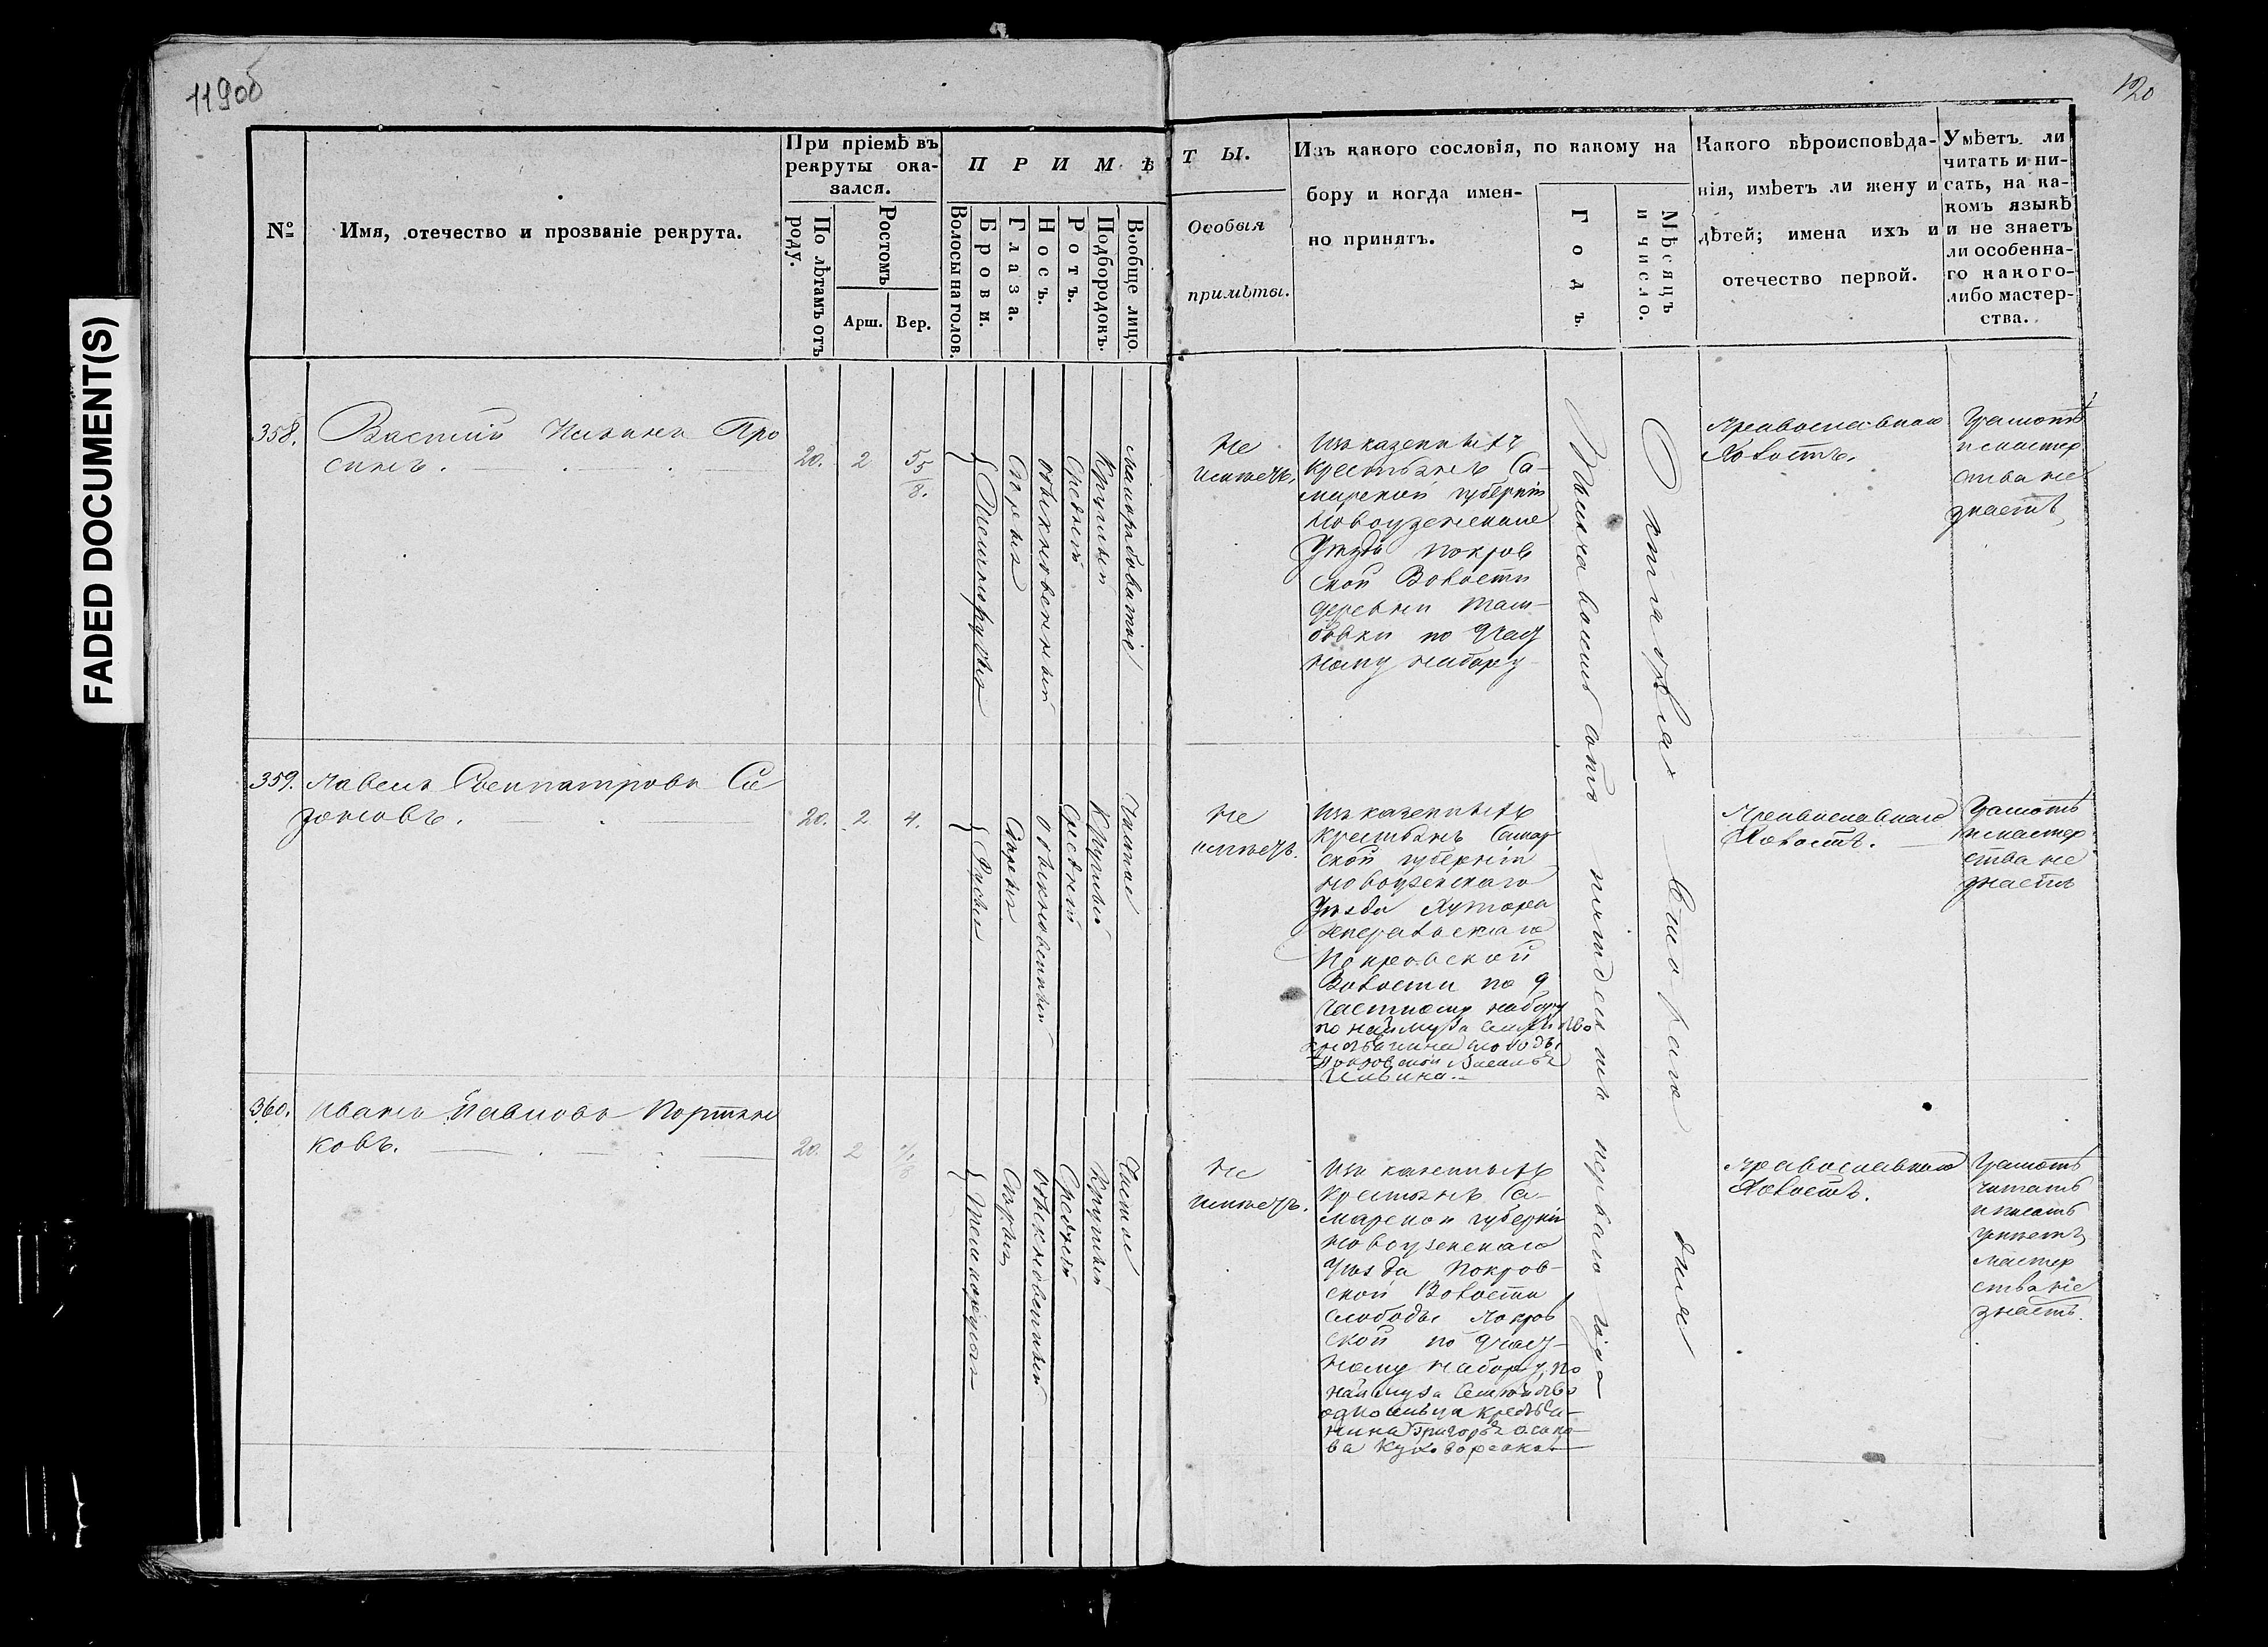 FADED DOCUMENT(S)
119об
120
№
Имя, отечество и прозваніе рекрута.
При пріемѣ въ
рекруты ока-
зался.
По лѣтамъ отъ
роду.
Ростомъ
Арш.
Вер.
П Р И М Ѣ
Волосы на голов.
Брови.
Глаза.
Носъ.
Ротъ.
Подбородокъ.
Вообще лицо.
Т Ы.
Особыя
примѣты.
Изъ какого сословія, по какому на
бору и когда имен-
но принятъ.
Годъ.
Мѣсяцъ
и число.
Какого вѣроисповѣда-
нія, имѣетъ ли жену и
дѣтей; имена ихъ и
отечество первой.
Умѣетъ ли
читать и пи-
сать, на ка-
комъ языкѣ
и не знаетъ
ли особенна-
го какого-
либо мастер-
ства.
358.
Василій Про
синъ.
20.
2
5 5/8.
Темнорусыя
Сѣрыя
обыкновенный
Средній
Круглый
Не
имѣетъ.
Изъ казенныхъ
крестьянъ Са-
марской губерніи
Новоузенскаго
Уѣзда Покров
ской Волости
деревни
по Участ
ному набору
Тысяча восемь сотъ пятдесятъ перваго года
Октября втораго дня
Православнаго
Холостъ.
Грамотѣ
и мастер
ства не
знаетъ
359.
Павелъ Са
зоновъ.
20.
2
4.
Русыя
Сѣрыя
обыкновенный
Средній
Круглый
Чистое
Не
имѣетъ.
Изъ казенныхъ
крестьянъ Самар
ской губерніи
Новоузенскаго
Уѣзда Хутора
Генеральскаго
Покровской
Волости по 9
частному набору
по найму за семейство
крестьянина слободы
Покровской Василья
Ильина.
Православнаго
Холостъ.
Грамотѣ
и мастер
ства не
знаетъ
360.
Иванъ Павловъ Портян
ковъ.
20.
2
Темнорусыя
Сѣрыя
обыкновенный
Средній
Круглый
Чистое
Не
имѣетъ.
Изъ казенныхъ
крестьянъ Са-
марской губерніи
Новоузенскаго
Уѣзда Покров-
ской Волости
слободы Покров
ской по Участ-
ному набору, по
найму за Семейство
односельца крестья-
нина Григорья Осипо-
ва
Православнаго
Холостъ.
Грамотѣ
читать
и писать
умѣетъ
мастер
ства не
знаетъ.